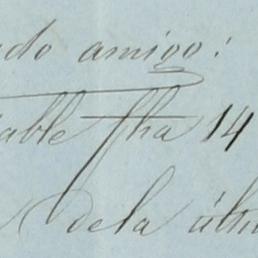 ado amigo:
able fha 14
dela últi